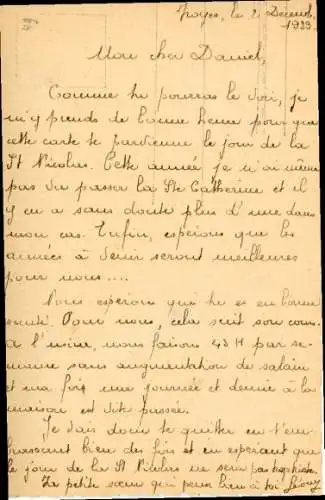 Troyes, le 2 Décemb.
1939.
Mon cher Daniel,
Comme tu pourras le voir, je
m'y prends de bonne heure pour que
cette carte te parvienne le jour de la
St Nicolas. Cette année je n'ai même
pas vu passer la Ste Catherine et il
y en a sans doute plus d'une dans
mon cas. Enfin, espérons que les
années à venir seront meilleures
pour nous....
Nous espérons que tu es en bonne
santé. Pour nous, cela suit son cours
à l'usine, nous faisons 43 H par se-
maine sans augmentation de salaire
et ma fois une journée et demie à la
maison est vite passée.
Je vais donc te quitter en t'em-
brassant bien des fois et en espérant que
le jour de la St Nicolas ne sera pas trop triste.
Ta petite sœur qui pense bien à toi